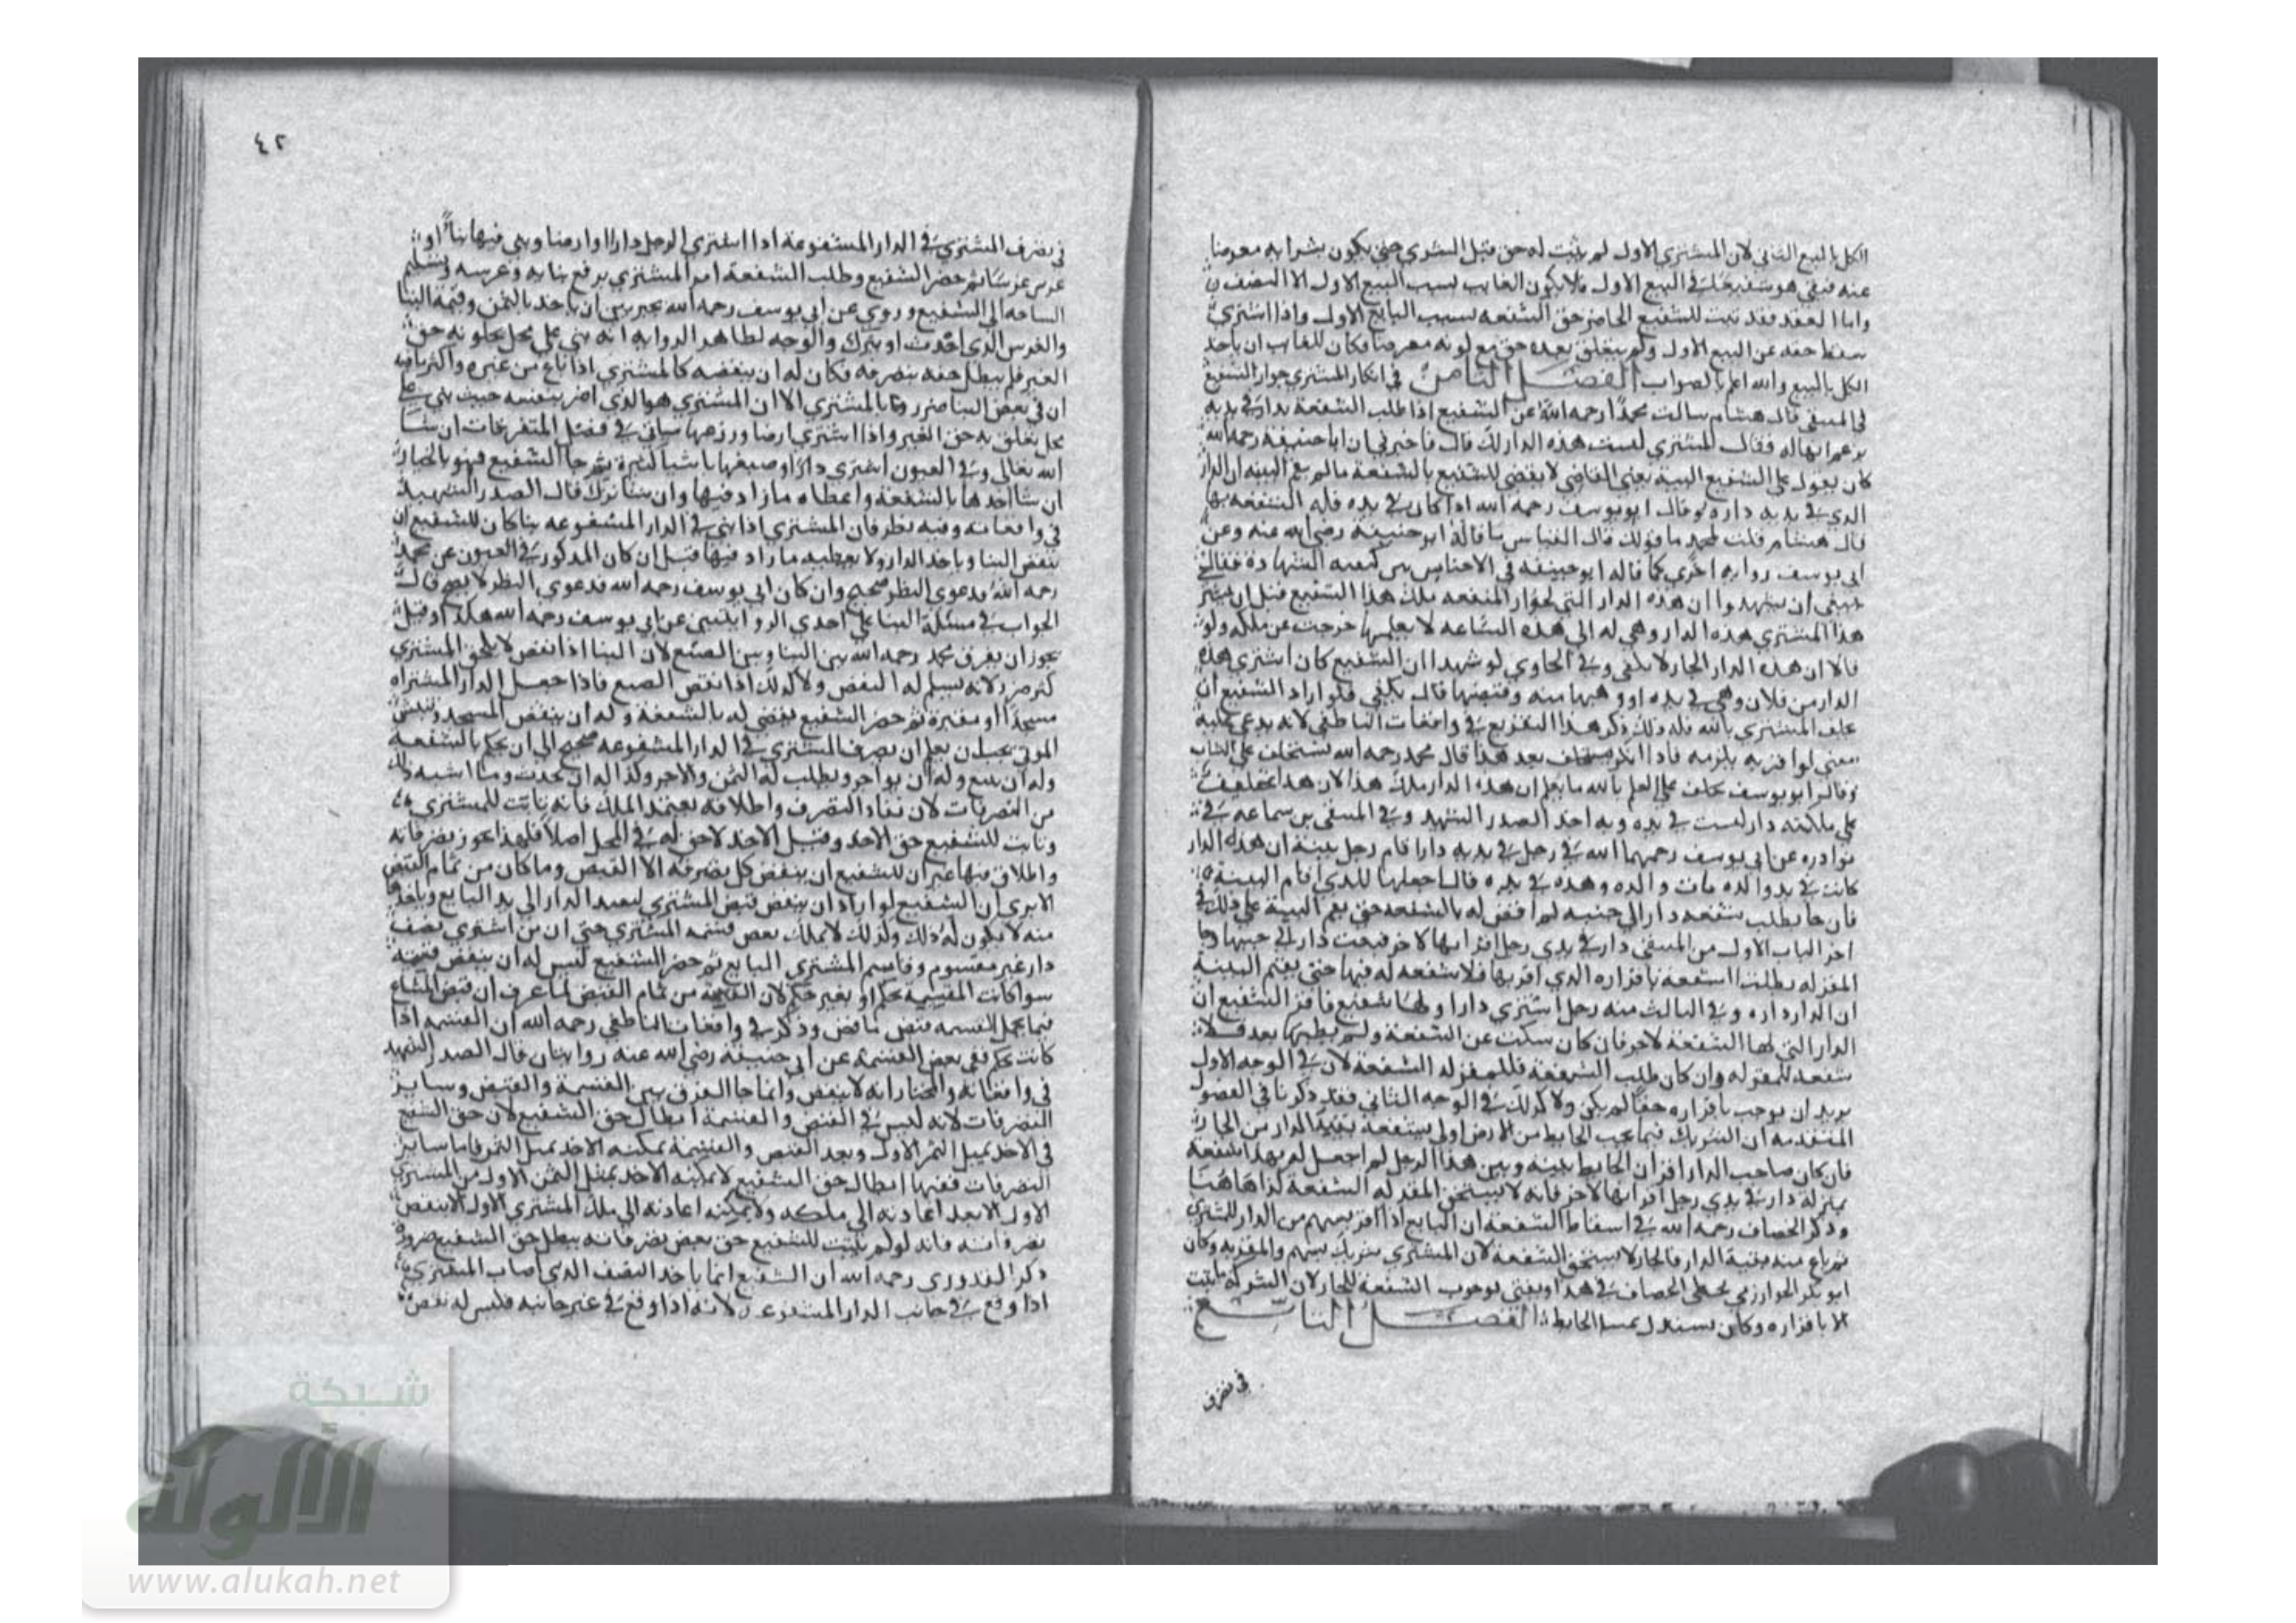 الكل بالبيع الثاني لان المشتري الاول لم يثبت له حق قبل الشري حتى يكون بشرايه معرضا
عنه فبقي هو شفيعا في البيع الاول فلا يكون الغايب بسبب البيع الاول الا النصف
واما العقد فقد ثبت للشفيع الحاضر حق الشفعه بسبب البايع الاول واذا اشتري
سقط حقه عن البيع الاول ولم يتعلق بعده حق مع لونه معرضا فكان للغايب ان ياخذ
الكل بالبيع والله اعلم بالصواب الفصل الثامن في انكار المشتري جوار الشفيع
في المنتقى قال هشام سالت محمدا رحمه الله عن الشفيع اذا طلب الشفعة بدار في يديه
يزعم انها له فقال المشتري ليست هذه الدار لك قال فاخبرني ان ابا حنيفة رحمه الله
كان يقول على الشفيع البينة يعني القاضي لا يقضي للشفيع بالشفعة ما لم يقم البينه ان الدار
الذي في يديه داره وقال ابو يوسف رحمه الله اذا كان في يده فله الشفعه بها
قال هشام قلت لمحمد ما قولك قال القياس ما قاله ابو حنيفة رضي الله عنه وعن
ابي يوسف روايه اخري كما قاله ابو حنيفه في الاجناس بين كيفيه الشهادة فقال
ينبغي ان يشهدوا ان هذه الدار التي بجوار المنفعه ملك هذا الشفيع قبل ان يشتر
هذا المشتري هذه الدار وهي له الى هذه الساعه لا يعلمها خرجت عن ملكه ولو
قالا ان هذه الدار الجار لا يكفي وفي الحاوي لو شهدا ان الشفيع كان اشترى هذه
الدار من فلان وهي في يده او وهبها منه وقبضها قال يكفي فلو اراد الشفيع ان
يحلف المشتري بالله فله ذلك ذكر هذا التفريع في واقعات الناطفي لانه يدعي عليه
معنى لو اقر به يلزمه فاذا انكر يستحلف بعد هذا قال محمد رحمه الله يستحلف على الثبات
وقال ابو يوسف يحلف على العلم بالله ما يعلم ان هذه الدار ملك هذا لان هذا تحليف
على ملكيه دار ليست في يده وبه اخذ الصدر الشهيد وفي المنتقى بن سماعه في
نوادره عن ابي يوسف رحمهما الله في رجل في يديه دار اقام رجل بينة ان هذه الدار
كانت في يد والده مات والده وهذه في يده قال اجعلها للذي اقام البينة
فان جا يطلب شفعه دار الى جنبه لم اقض له بالشفعه حتى يقم البينة على ذلك في
اخر الباب الاول من المنتقى دار في يدي رجل اقر انها لاخر فبيعت دار الى جنبها وجا
المقر له يطلب الشفعه باقراره الذي اقر بها فلا شفعه له فيها حتى يقيم البينة
ان الدار داره وفي الثالث منه رجل اشترى دارا ولها شفيع فاقر الشفيع ان
الدار التي لها الشفعة لاخر فان كان سكت عن الشفعة ولم يطلبها بعد فلا
شفعه للمقر له وان كان طلب الشفعة فللمقر له الشفعة لان في الوجه الاول
يريد ان يوجب باقراره حقا لم يكن ولا كذلك في الوجه الثاني فقد ذكرنا في الفصول
المتقدمه ان الشريك فيما تحت الحايط من الارض اولى بشفعة بقية الدار من الجار
فان كان صاحب الدار اقر ان الحايط بينه وبين هذا الرجل لم اجعل له بهذا شفعة
بمنزلة دار في يدي رجل اقر انها لاخر فانه لا يستحق المقر له الشفعة كذا هاهنا
وذكر الخصاف رحمه الله في اسقاط الشفعة ان البايع اذا اقر بسهم من الدار للمشتري
ثم باع منه بقية الدار فالجار لا يستحق الشفعة لان المشتري شريك بسهم والمقر به وكان
ابو بكر الخوارزمي يخطي الخصاف في هذا ويفتي بوجوب الشفعة للجار لان الشركة ما ثبت
الا باقراره وكان يستدل بمسلة الحايط الفصل التاسع
في تصرف
٤٢
في تصرف المشتري في الدار المشفوعة اذا اشترى الرجل دارا او ارضا وبنى فيها بناً او
غرس غرسا ثم حضر الشفيع وطلب الشفعة امر المشتري برفع بنايه وغرسه وتسليم
الساحه الى الشفيع وروي عن ابي يوسف رحمه الله يخير بين ان ياخذ بالثمن وقيمة البنا
والغرس الذي احدث او يترك والوجه لظاهر الروايه انه بنى على محل تعلق به حق
الغير فلم يبطل حقه بتصرفه فكان له ان ينقضه كالمشتري اذا باع من غيره واكثر مافيه
ان في بعض البنا ضررا بالمشتري الا ان المشتري هو الذي اضر بنفسه حيث بنى على
محل يتعلق به حق الغير واذا اشترى ارضا وزرعها سياتي في فصل المتفرقات ان شا
الله تعالى وفي العيون اشترى دارا وصبغها باشيا كثيرة ثم جا الشفيع فهو بالخيار
ان شا اخذها بالشفعة واعطاه ما زاد فيها وان شا ترك قال الصدر الشهيد
في واقعاته وفيه نظر فان المشتري اذا بنى في الدار المشفوعه بنا كان للشفيع ان
ينقض البنا وياخذ الدار ولا يعطيه ما زاد فيها قيل ان كان المذكور في العيون عن محمد
رحمه الله فدعوى النظر صحيح وان كان ابي يوسف رحمه الله فدعوى النظر لا يصح فان
الجواب في مسئلة البنا على احدى الروايتين عن ابي يوسف رحمه الله هكذا وقيل
يجوز ان يفرق محمد رحمه الله بين البنا وبين الصبغ لان البنا اذا نقض لا يلحق المشتري
كثير ضرر لانه يسلم له النقض ولا كذلك اذا نقض الصبغ فاذا جعل الدار المشتراه
مسجدا او مقبرة ثم حضر الشفيع يقضى له بالشفعة وله ان ينقض المسجد وينبش
الموتى يجب ان يعلم ان تصرف المشتري في الدار المشفوعه صحيح الى ان يحكم بالشفعة
وله ان يبيع وله ان يواجر ويطلب له الثمن والاجر وكذا له ان يحدث وما اشبه ذلك
من التصرفات لان نفاذ التصرف واطلاقه يعتمد الملك فانه ثابت للمشتري
وثابت للشفيع حق الاخذ وقبل الاخذ لا حق له في المحل اصلا فلهذا تجوز تصرفاته
واطلاق فيها غير ان للشفيع ان ينقض كل تصرفه الا القبض وما كان من تمام القبض
الا يرى ان الشفيع لو اراد ان ينقض قبض المشتري ليعيد الدار الى يد البايع وياخذها
منه لا يكون له ذلك وكذلك لا يملك نقض قسمه المشتري حتى ان من اشترى نصف
دار غير مقسوم وقاسم المشتري البايع ثم حضر الشفيع ليس له ان ينقض قسمته
سوا كانت القسمة بحكم او بغير حكم لان القسمة من تمام القبض لما عرف ان قبض المشاع
فيما يحتمل القسمه قبض ناقص وذكر في واقعات الناطفي رحمه الله ان القسمه اذا
كانت بحكم ففي نقض القسمة عن ابي حنيفة رضي الله عنه روايتان قال الصدر الشهيد
في واقعاته والمختار انه لا ينقض وانما جا الفرق بين القسمة والقبض وساير
التصرفات لانه ليس في القبض والقسمة ابطال حق الشفيع لان حق الشفيع
في الاخذ بمثل الثمن الاول وبعد القبض والقسمة يمكنه الاخذ بمثل الثمن فاما ساير
التصرفات ففيها ابطال حق الشفيع لا يمكنه الاخذ بمثل الثمن الاول من المشتري
الاول الا بعد اعادته الى ملكه ولا يمكنه اعادته الى ملك المشتري الاول الا بنقض
تصرفاته فانه لو لم يثبت للشفيع حق نقض تصرفاته يبطل حق الشفيع ضرورة
ذكر القدوري رحمه الله ان الشفيع انما ياخذ النصف الذي اصاب المشتري
اذا وقع في جانب الدار المشفوعه لانه اذا وقع في غير جانبه فليس له نقض
شبكة
الألوكة
www.alukah.net